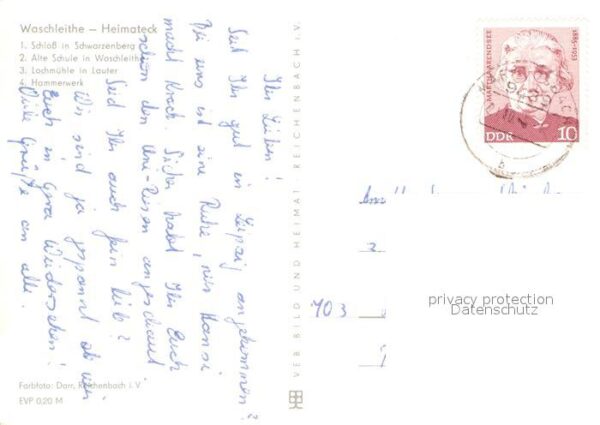 Waschleithe – Heimateck
1. Schloß in Schwarzenberg
2. Alte Schule in Waschleithe
3. Lochmühle in Lauter
4. Hammerwerk
Ihr Lieben!
Seid Ihr gut in Leipzig angekommen?
Bei uns ist eine Ruhe, nur Hansi
macht Krach. Sicher habt Ihr Euch
schon den Uni-Riesen angeschaut
Seid Ihr auch fein lieb?
Wir sind ja gespannt ob wir
Euch in Gera Wiedersehen!
Viele Grüße an alle.
Farbfoto: Darr, Reichenbach i. V.
EVP 0,20 M
VEB BILD UND HEIMAT REICHENBACH i. V.
MARTHA ARENDSEE
1885-1953
DDR
10
703
privacy protection
Datenschutz